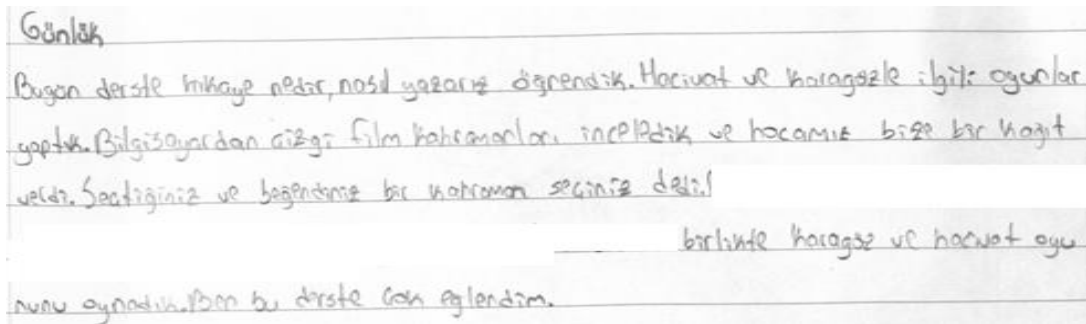 Günlük
Bugün derste hikaye nedir, nasıl yazarız öğrendik. Hacivat ve Karagözle ilgili oyunlar
yaptık. Bilgisayardan çizgi film kahramanları inceledik ve hocamız bize bir kağıt
verdi. Seçtiğiniz ve beğendiniz bir kahraman seçiniz dedi.
birlikte karagöz ve hacivat oyu
nunu oynadık. Ben bu derste çok eğlendim.